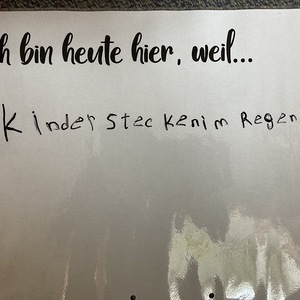 h bin heute hier, weil...
Kinder stecken im Regen